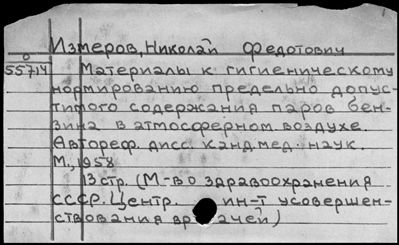 Измеров, Николай Федотович
0
55714
Материалы к гигиеническому
нормированию предельно допус-
тимого содержания паров бен-
зина в атмосферном воздухе.
Автореф. дисс. канд. мед. наук.
М., 1958
13 стр. (М-во здравоохранения
СССР. Центр. ин-т усовершен-
ствования врачей)